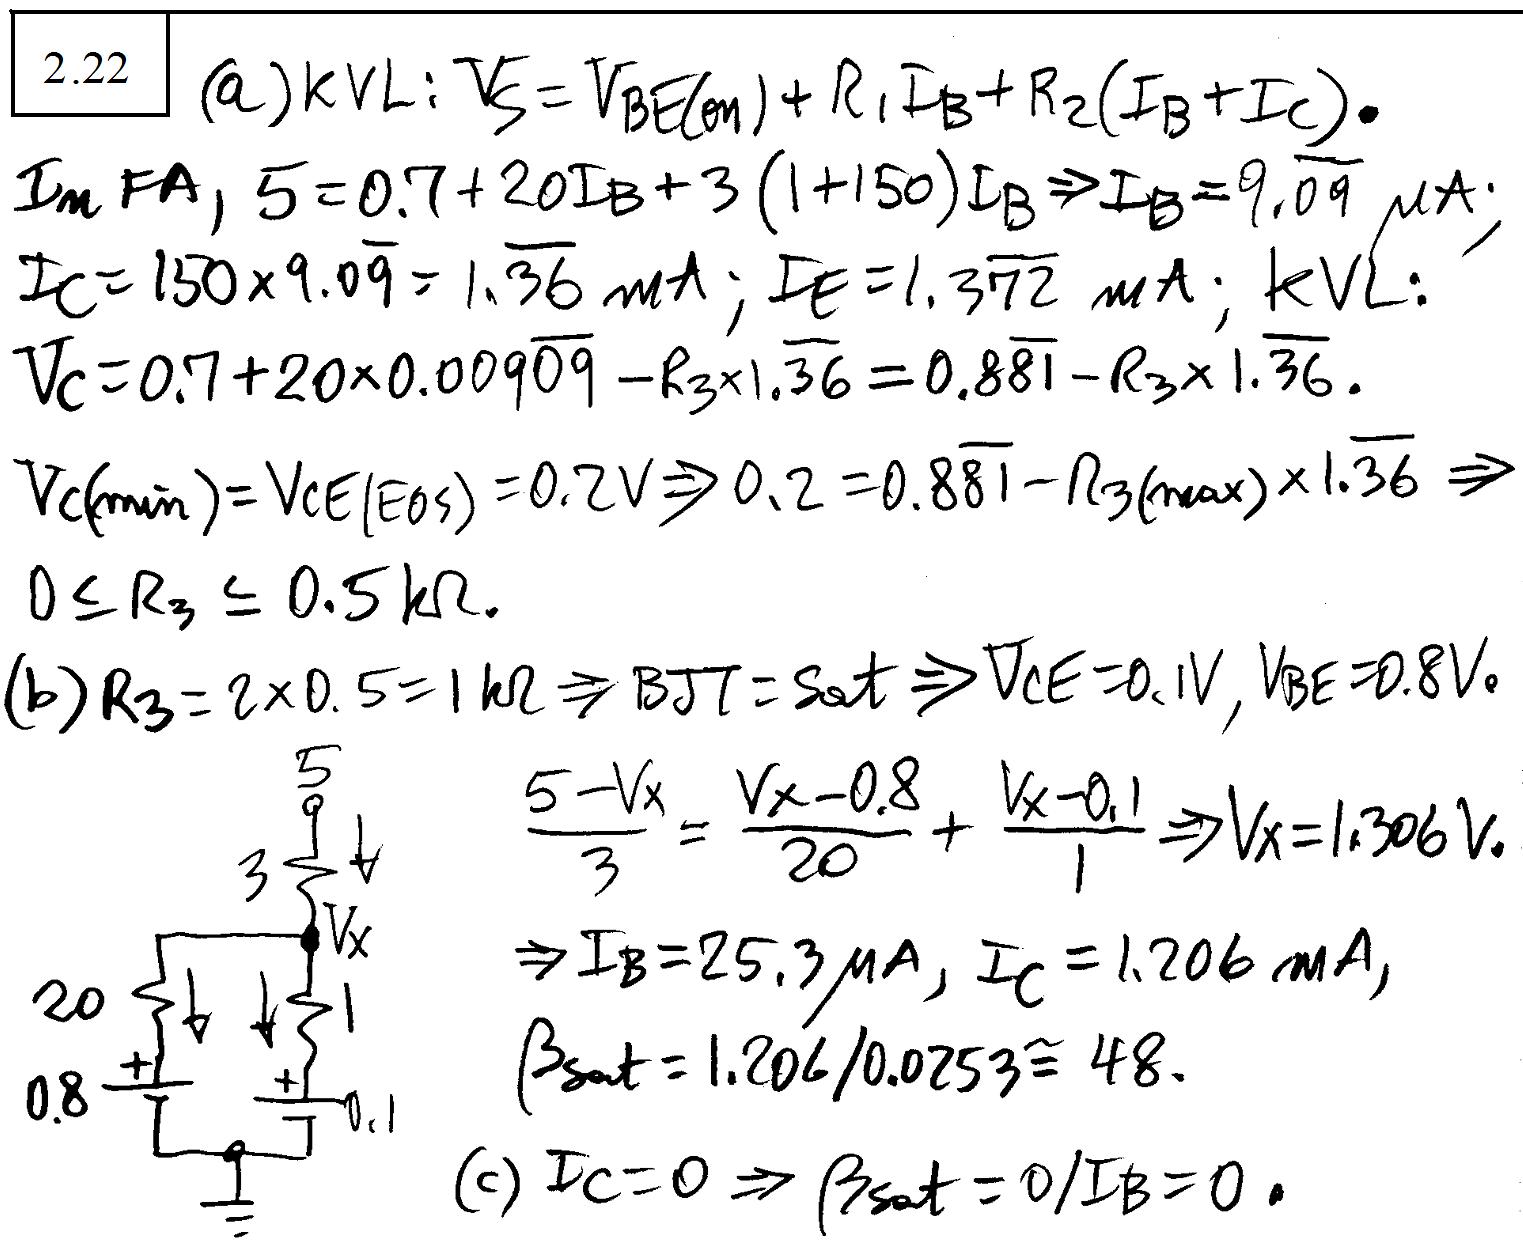 2.22
(a) KVL: VS = VBE(on) + R1IB + R2(IB + IC).
In FA, 5 = 0.7 + 20IB + 3(1+150)IB ⇒ IB = 9.0̅9̅ μA;
IC = 150 × 9.0̅9̅ = 1.3̅6̅ mA; IE = 1.37̅2̅ mA; KVL:
VC = 0.7 + 20×0.0090̅9̅ − R3×1.3̅6̅ = 0.88̅1̅ − R3×1.3̅6̅.
VC(min) = VCE(EOS) = 0.2V ⇒ 0.2 = 0.88̅1̅ − R3(max)×1.3̅6̅ ⇒
0 ≤ R3 ≤ 0.5 kΩ.
(b) R3 = 2×0.5 = 1 kΩ ⇒ BJT = Sat ⇒ VCE = 0.1V, VBE = 0.8V.
5
3
Vx
20
1
+
+
0.8
0.1
(5−Vx)/3 = (Vx−0.8)/20 + (Vx−0.1)/1 ⇒ Vx = 1.306 V.
⇒ IB = 25.3 μA, IC = 1.206 mA,
βsat = 1.206/0.0253 ≅ 48.
(c) IC = 0 ⇒ βsat = 0/IB = 0.